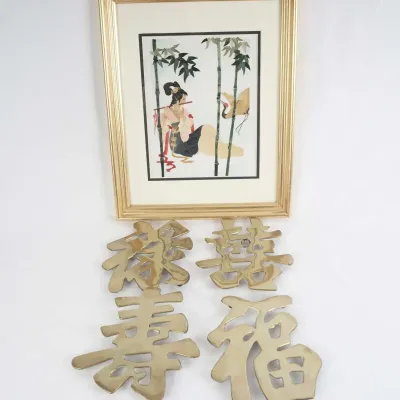 祿 囍
壽 福